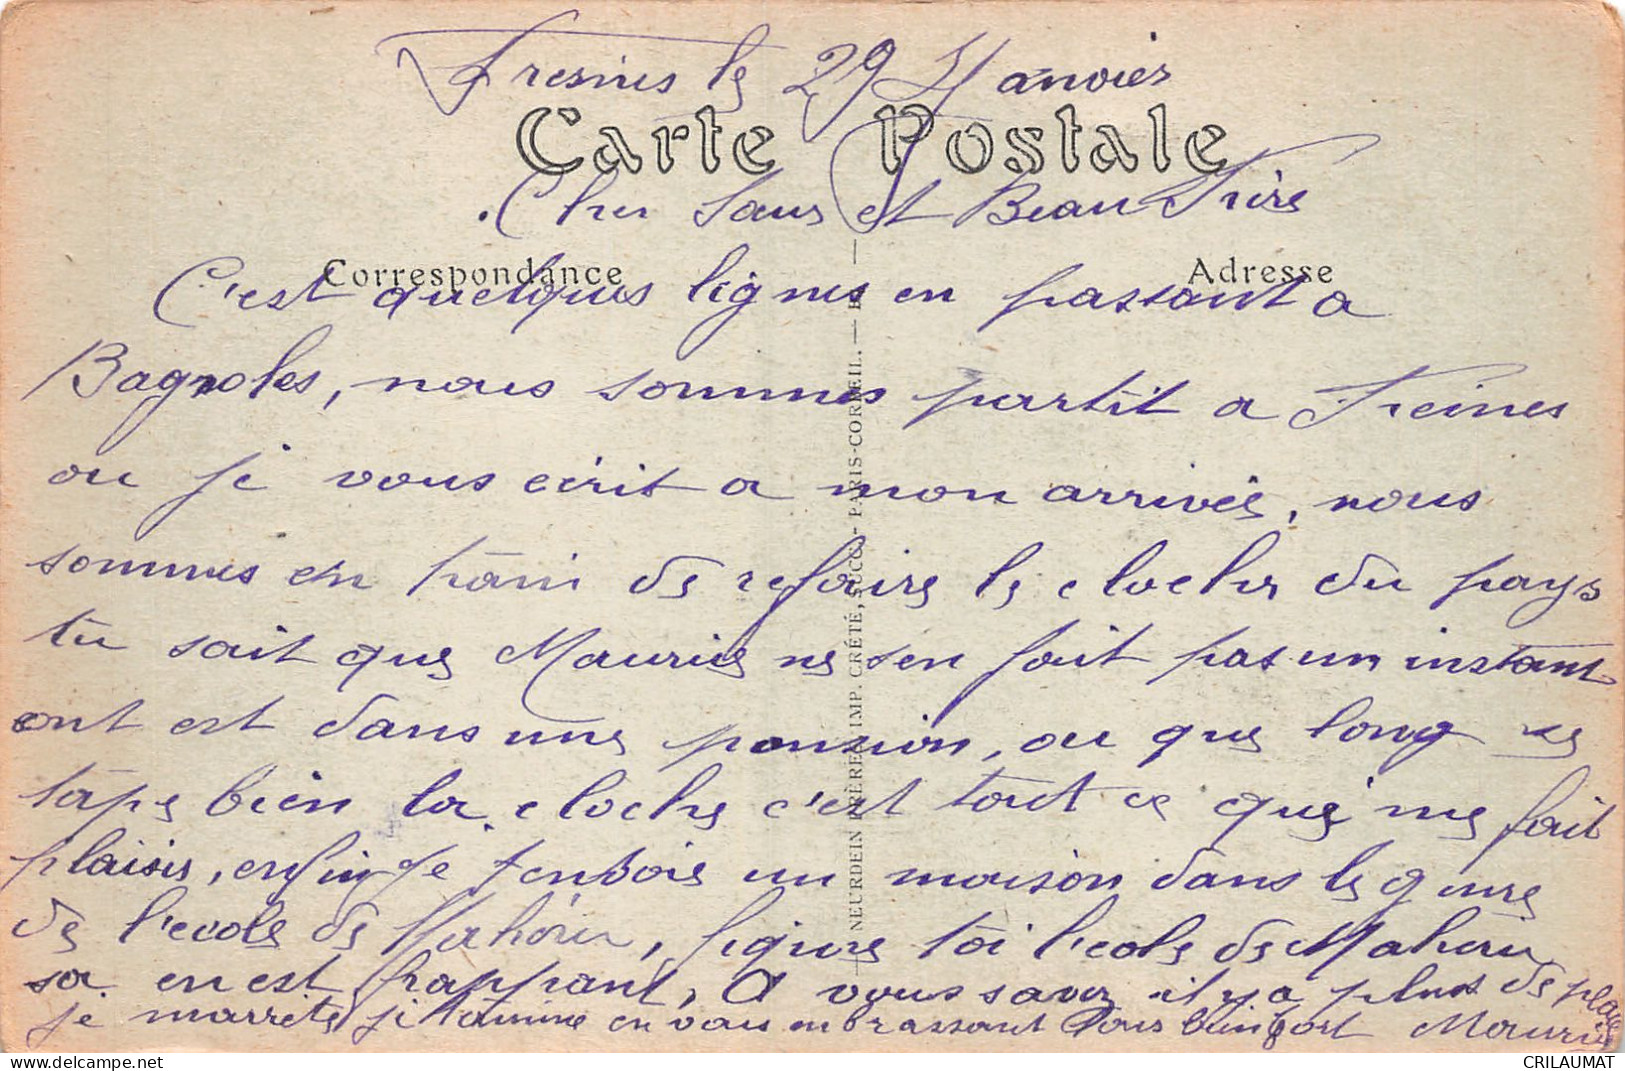 Fresnes le 29 Janvier
Carte Postale
Cher Sœur et Beau Frère
Correspondance
Adresse
C'est quelques lignes en passant a
Bagnoles, nous sommes partit a Freines
ou je vous ecrit a mon arrivée, nous
sommes en train de refaire le clocher du pays
tu sait que Maurice ne sen fait pas un instant
ont est dans une pansion, ou que long ne
tape bien la cloche c'est tout ce que me fait
plaisir, enfin je tenvoie un maison dans le genre
de l'ecole de Mahéru, figure toi l'ecole de Maheru
sa en est frappant, a vous savez il y a plus de place
je marrete je termine en vous embrassant tous bien fort Maurice
NEURDEIN FRÈRES IMP. CRÉTÉ, SUCC. - PARIS-CORBEIL. —
CRILAUMAT